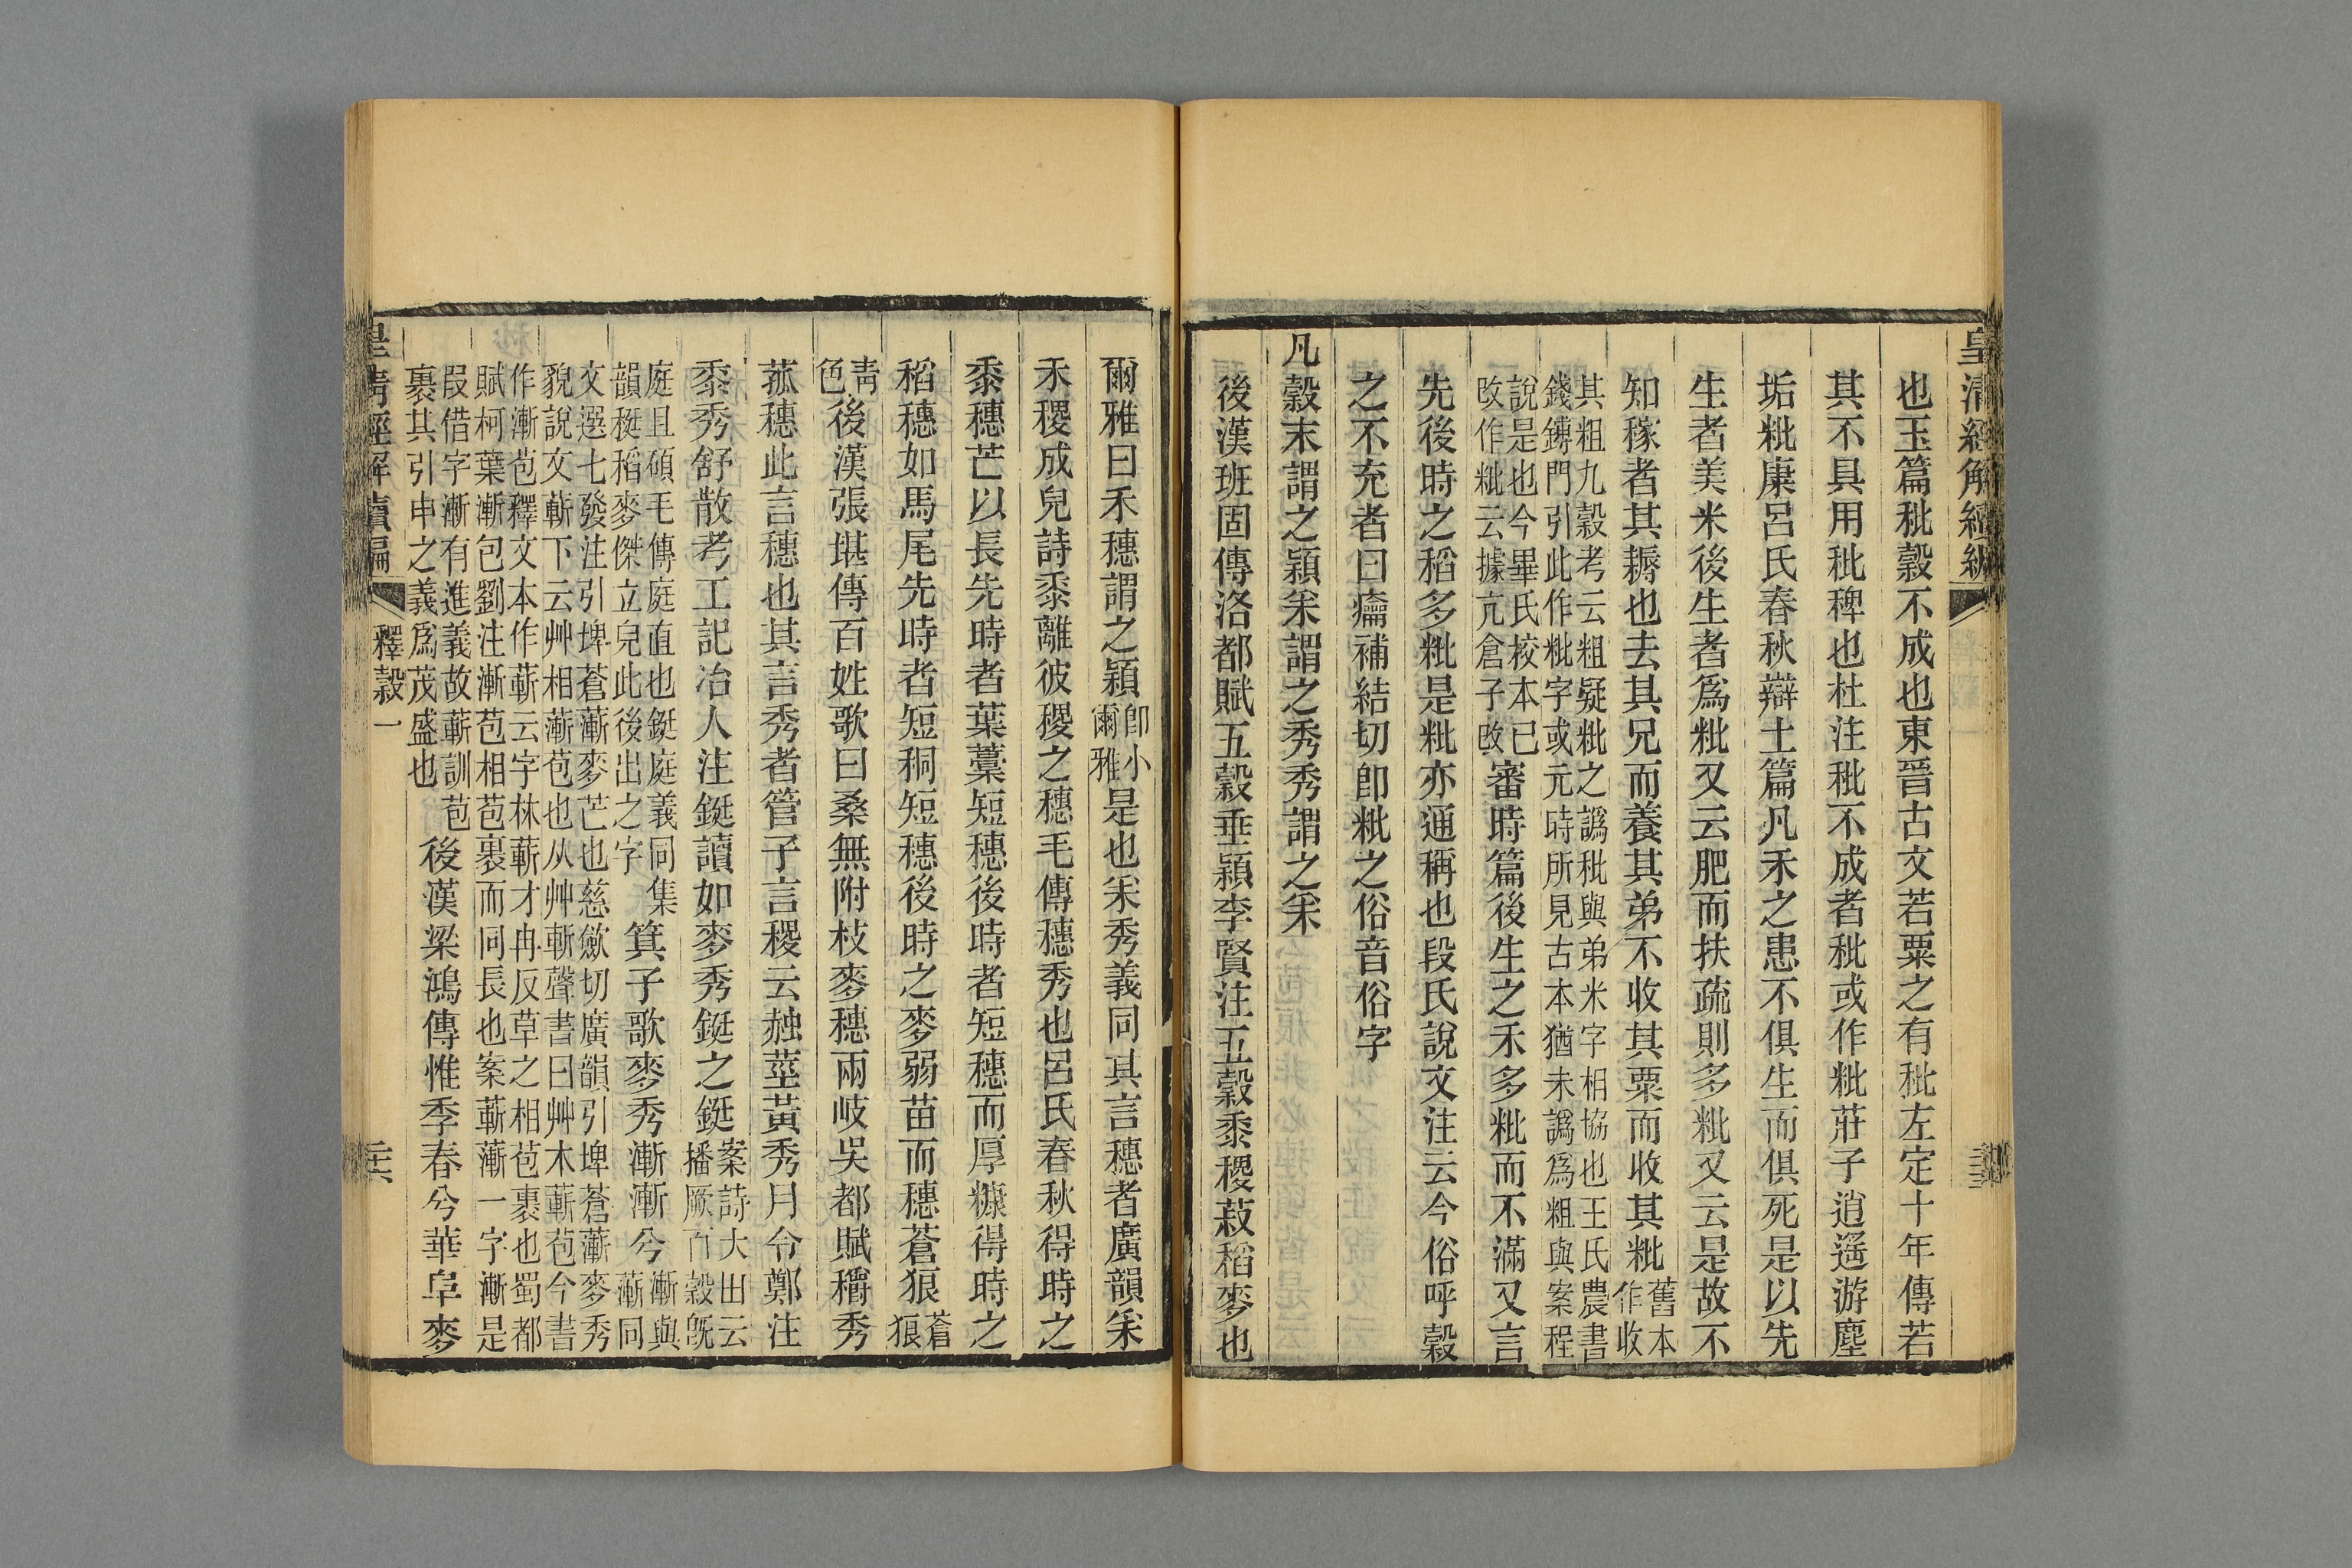 皇清經解續編
也玉篇秕穀不成也東晉古文若粟之有秕左定十年傳若
其不具用秕稗也杜注秕不成者秕或作粃莊子逍遙游塵
垢粃康呂氏春秋辯土篇凡禾之患不俱生而俱死是以先
生者美米後生者爲粃又云肥而扶疏則多粃又云是故不
知稼者其耨也去其兄而養其弟不收其粟而收其粃舊本作收
其粗九穀考云粗疑粃之譌秕與弟米字相協也王氏農書
錢鎛門引此作粃字或元時所見古本猶未譌爲粗與案程
說是也今畢氏校本已
改作粃云據亢倉子改審時篇後生之禾多粃而不滿又言
先後時之稻多粃是粃亦通稱也段氏說文注云今俗呼穀
之不充者曰癟補結切卽粃之俗音俗字
凡穀末謂之穎采謂之秀秀謂之采
後漢班固傳洛都賦五穀垂穎李賢注五穀黍稷菽稻麥也
爾雅曰禾穗謂之穎卽小爾雅是也采秀義同其言穗者廣韻采
禾稷成皃詩黍離彼稷之穗毛傳穗秀也呂氏春秋得時之
黍穗芒以長先時者葉藁短穗後時者短穗而厚糠得時之
稻穗如馬尾先時者短秱短穗後時之麥弱苗而穗蒼狼蒼狼
青色後漢張堪傳百姓歌曰桑無附枝麥穗兩岐吳都賦穱秀
菰穗此言穗也其言秀者管子言稷云赨莖黃秀月令鄭注
黍秀舒散考工記冶人注鋌讀如麥秀鋌之鋌案詩大田云播厥百穀旣
庭且碩毛傳庭直也鋌庭義同集
韻䅍稻麥傑立皃此後出之字箕子歌麥秀漸漸兮漸與蔪同
文選七發注引埤蒼蔪麥芒也慈歛切廣韻引埤蒼蔪麥秀
貌說文蔪下云艸相蔪苞也从艸斬聲書曰艸木蔪苞今書
作漸苞釋文本作蔪云字林蔪才冉反草之相苞裹也蜀都
賦柯葉漸包劉注漸苞相苞裹而同長也案蔪蔪一字漸是
叚借字漸有進義故蔪訓苞
裹其引申之義爲茂盛也後漢梁鴻傳惟季春兮華阜麥
皇清經解續編
釋穀一